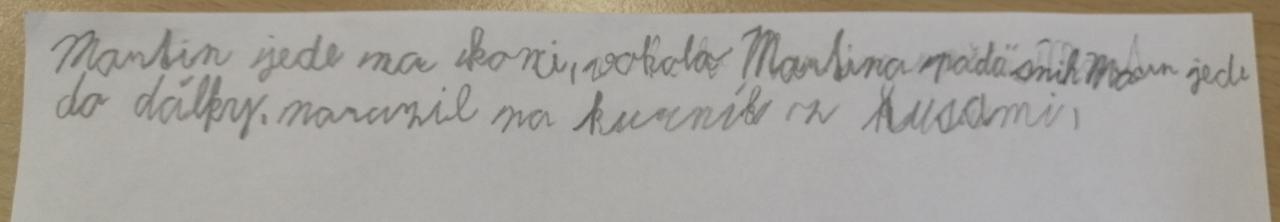 Martin jede na koni, vokola Martina padá snih Martin jede
do dálky. narazil na kurník z husami,